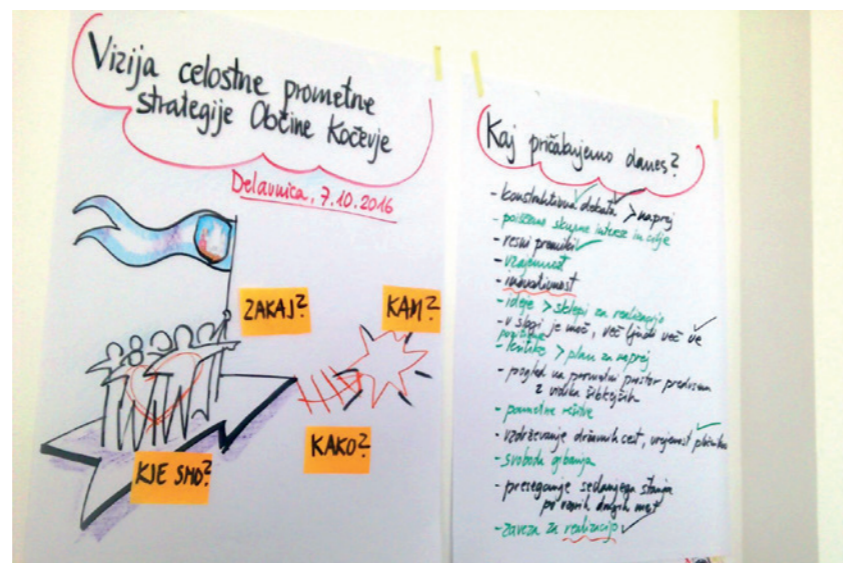 Vizija celostne prometne
strategije Občine Kočevje
Delavnica, 7.10.2016
ZAKAJ?
KAM?
KAKO?
KJE SMO?
Kaj pričakujemo danes?
- konstruktivna debata > naprej
- poiščemo skupne interese in cilje
- resni premiki
- vzajemnost
- inovativnost
- ideje > sklepi za realizacijo
- v slogi je moč, več ljudi več ve
- kritike > plan za naprej
- pogled na prometni prostor predvsem
z vidika šibkejših
- pametne rešitve
- vzdrževanje državnih cest, urejenost pločnikov
- svoboda gibanja
- preseganje sedanjega stanja
po vzorih drugih mest
- zaveza za realizacijo